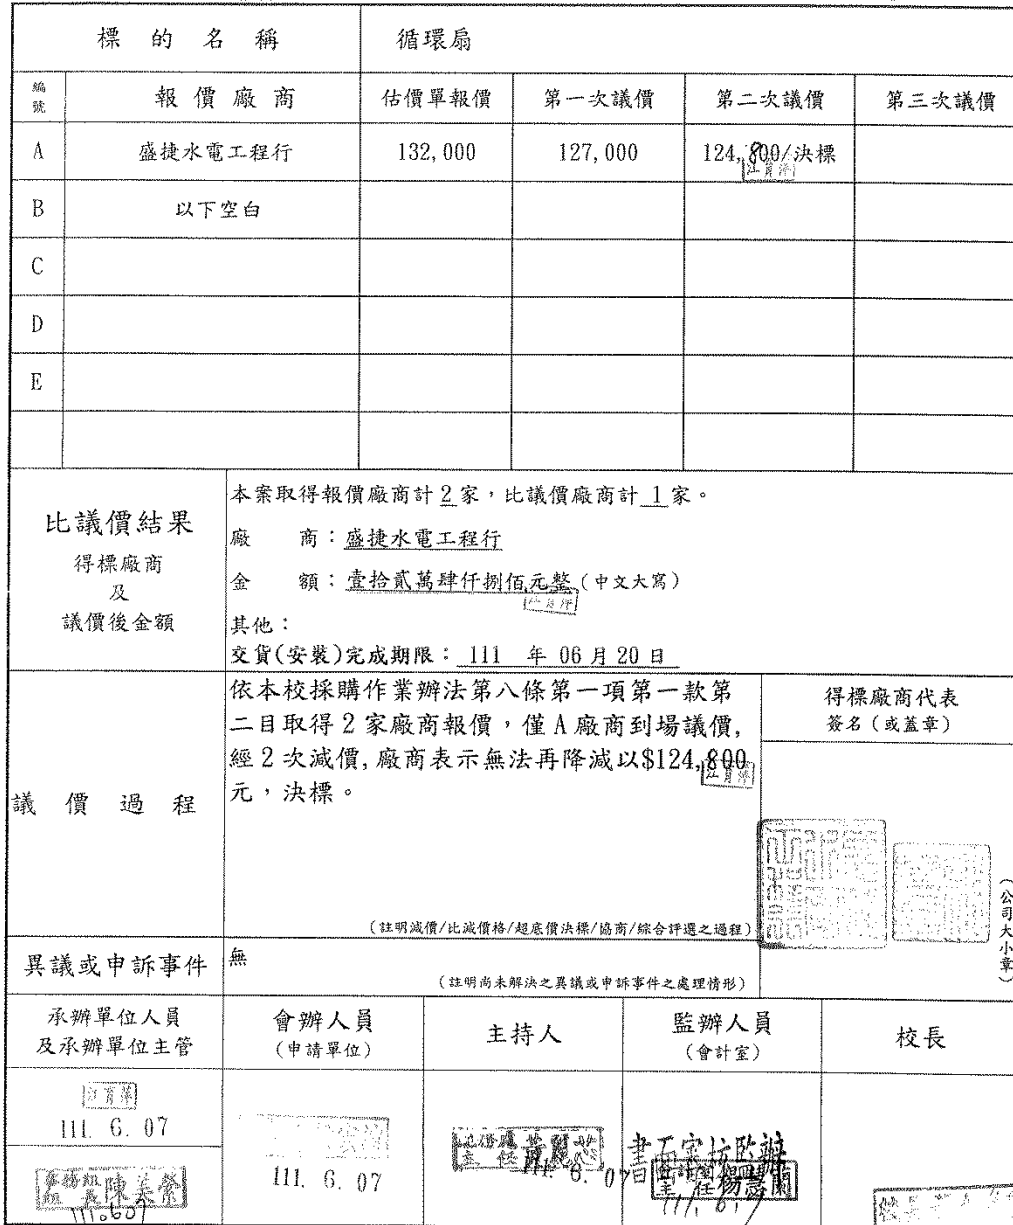 標 的 名 稱 循環扇
編號 報 價 廠 商 估價單報價 第一次議價 第二次議價 第三次議價
A 盛捷水電工程行 132,000 127,000 124,800/決標
B 以下空白
C
D
E
比議價結果
得標廠商
及
議價後金額
本案取得報價廠商計 2 家，比議價廠商計 1 家。
廠 商：盛捷水電工程行
金 額：壹拾貳萬肆仟捌佰元整(中文大寫)
其他：
交貨(安裝)完成期限： 111 年 06 月 20 日
議 價 過 程
依本校採購作業辦法第八條第一項第一款第
二目取得 2 家廠商報價，僅 A 廠商到場議價,
經 2 次減價, 廠商表示無法再降減以$124,800
元，決標。
(註明減價/比減價格/超底價決標/協商/綜合評選之過程)
得標廠商代表
簽名（或蓋章）
(公司大小章)
異議或申訴事件 無
(註明尚未解決之異議或申訴事件之處理情形)
承辦單位人員
及承辦單位主管
會辦人員
(申請單位)
主持人
監辦人員
(會計室)
校長
111. 6. 07
111. 6. 07
111. 6. 07
書面審核監辦
陳美縈
111.6.07